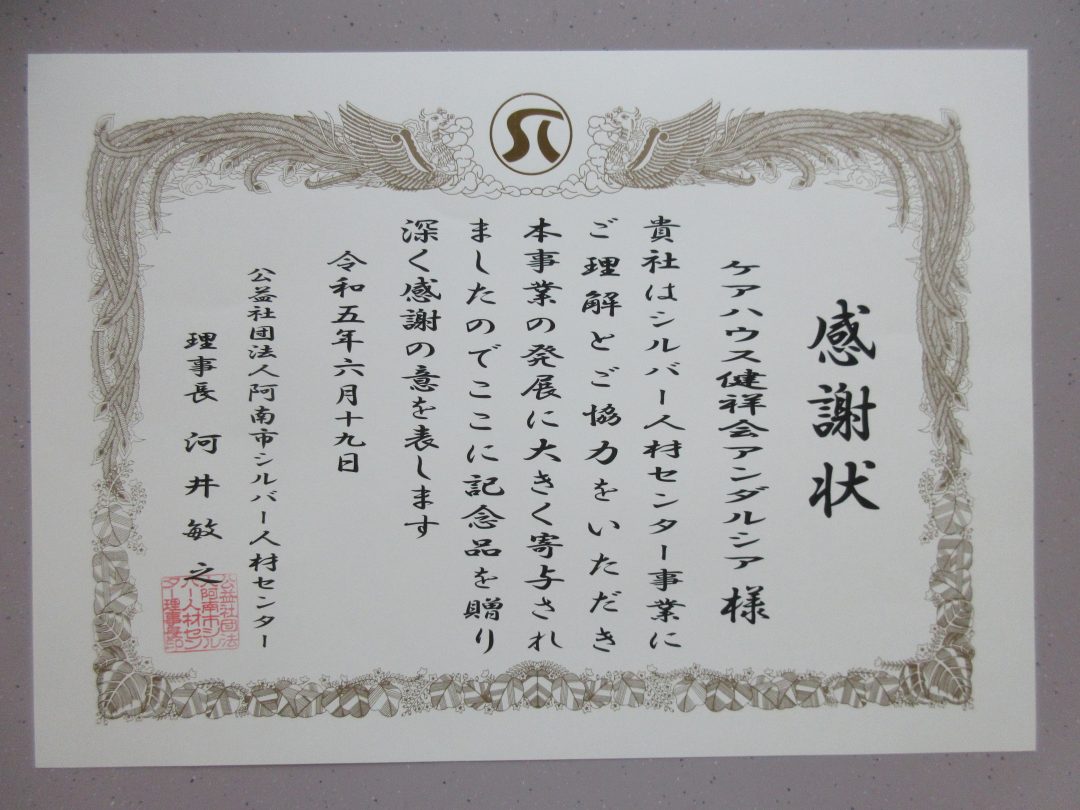 感謝状
ケアハウス健祥会アンダルシア 様
貴社はシルバー人材センター事業に
ご理解とご協力をいただき
本事業の発展に大きく寄与され
ましたのでここに記念品を贈り
深く感謝の意を表します
令和五年六月十九日
公益社団法人阿南市シルバー人材センター
理事長 河井敏之
公益社団法
人阿南市シル
バー人材セン
ター理事長印